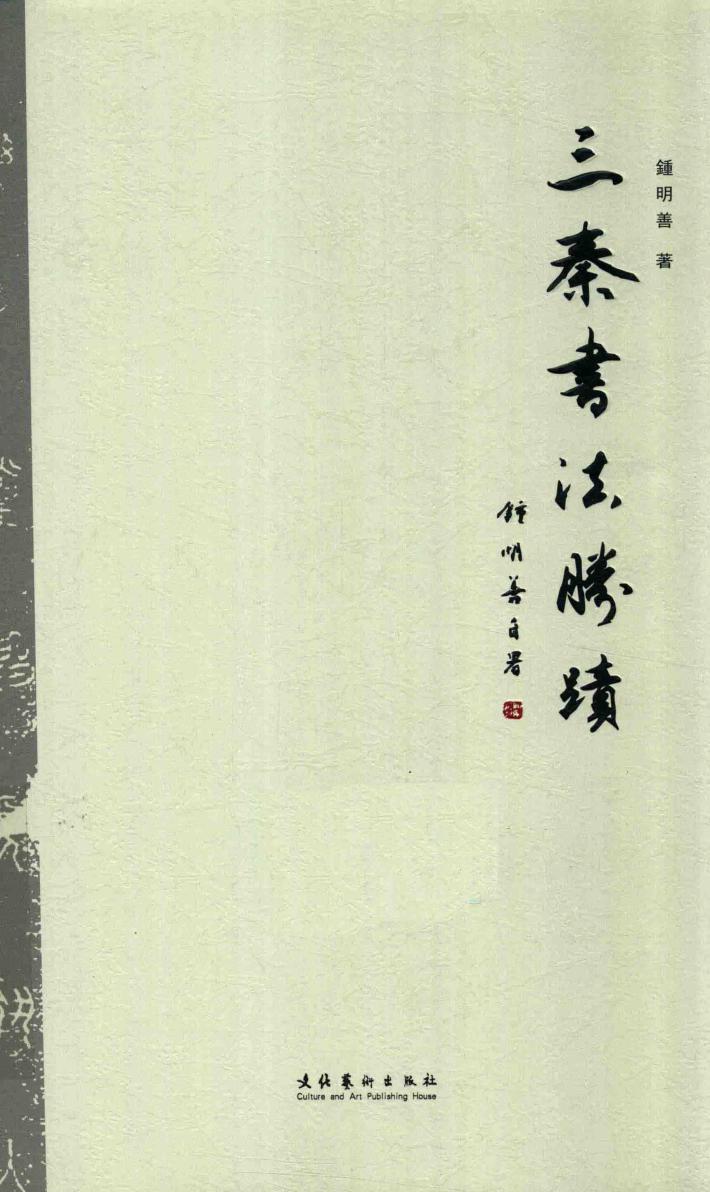 鍾明善 著
三秦書法勝蹟
鍾明善自署
文化藝術出版社
Culture and Art Publishing House